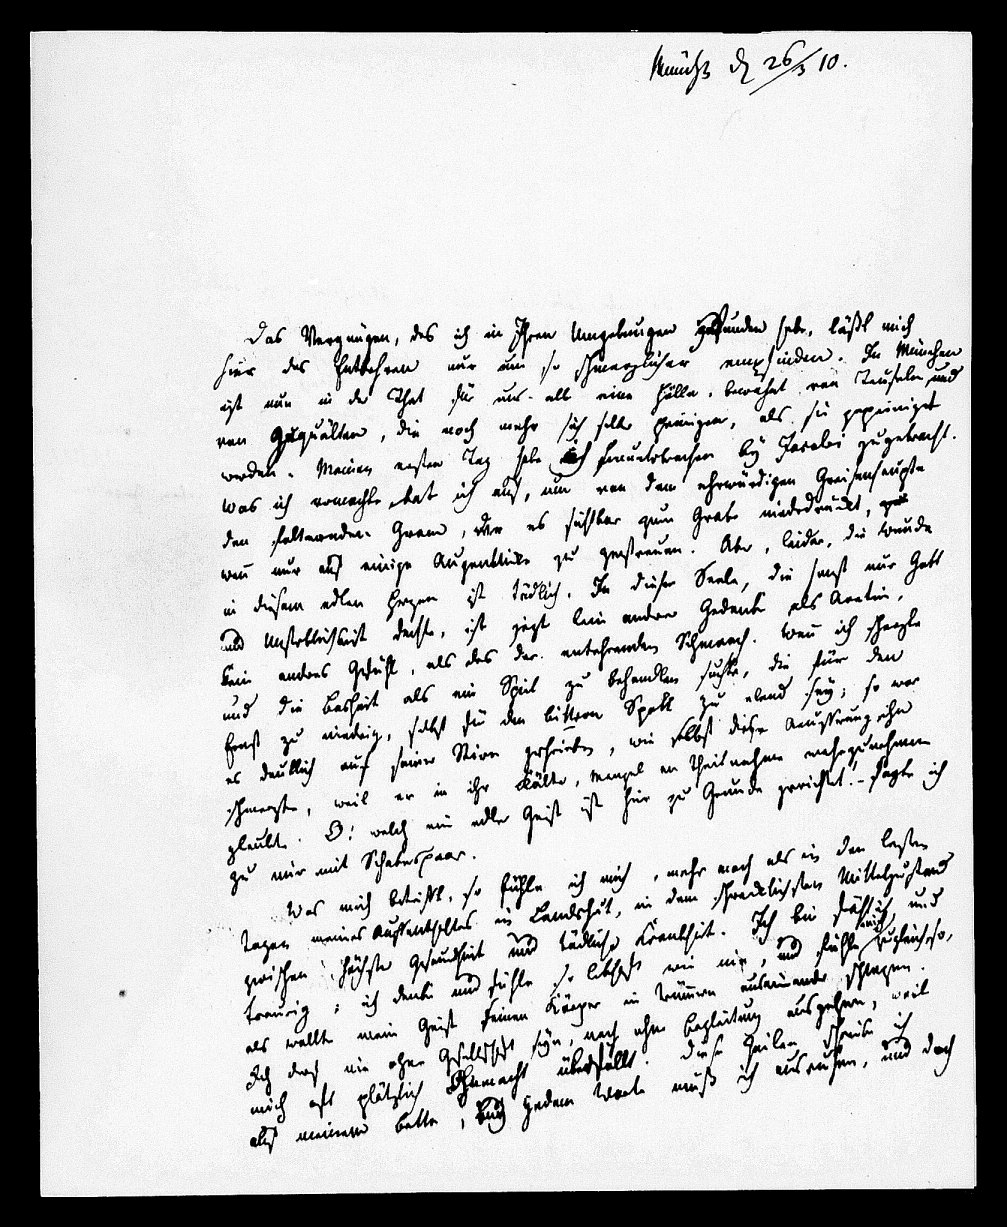 Münch. d 26/3 10.
Das Vergnügen, das ich in Ihren Umgebungen gefunden habe, läßt mich
hier das Entbehren nur um so schmerzlicher empfinden. In München
ist nun in der That für uns alle eine Hölle, bewohnt von Teufeln und
von Gequälten, die noch mehr sich selbst peinigen, als sie gepeiniget
werden. Meinen ersten Tag habe ich ununterbrochen bey Jacobi zugebracht.
Was ich vermochte bat ich auf, um von dem ehrwürdigen Greisenhaupte
den folternden Gram, der es sichtbar zum Grabe niederdrückt,
wenn nur auf einige Augenblicke zu zerstreuen. Aber, leider, die Wunde
in diesem edlen Herzen ist tödlich. In dieser Seele, die sonst nur Gott
und Unsterblichkeit dachte, ist jezt kein anderer Gedanke als Aretin,
kein andres Gefühl, als das der entehrenden Schmach. Wenn ich scherzte
und die Bosheit als ein Spiel zu behandlen suchte, die für den
Ernst zu niedrig, selbst für den bittern Spott zu elend sey; so war
es deutlich auf seiner Stirn geschrieben, wie selbst diese Aeusserung ihn
schmerzte, weil er in ihr Kälte, Mangel an Theilnahme wahrzunehmen
glaubte. O! welch ein edler Geist ist hier zu Grunde gerichtet! – sagte ich
zu mir mit Schakespaar.
Was mich betrifft, so fühle ich mich, mehr noch als in den lezten
Tagen meines Auffenthaltes in Landshut, in dem schrecklichsten Mittelzustand
zwischen höchster Gesundheit und tödlicher Krankheit. Ich bin fröhlich und
traurig; ich denke und fühle so lebhaft wie nie, und fühle mich zugleich, so,
als wollte mein Geist seinen Körper in Trümmern auseinander schlagen.
Ich darf nie ohne Gesellschaft seyn, noch ohne Begleitung ausgehen, weil
mich oft plötzlich Ohnmacht überfällt. Diese Zeilen schreibe ich
auf meinem Bette, bey jedem Worte muß ich ausruhen, und doch